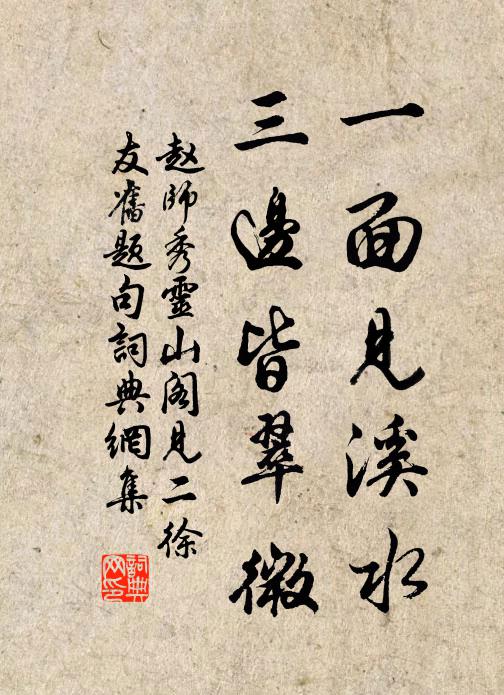 一面見溪水
三邊皆翠微
趙師秀靈山閣見二徐
友舊題句詞典網集
詞典
网印